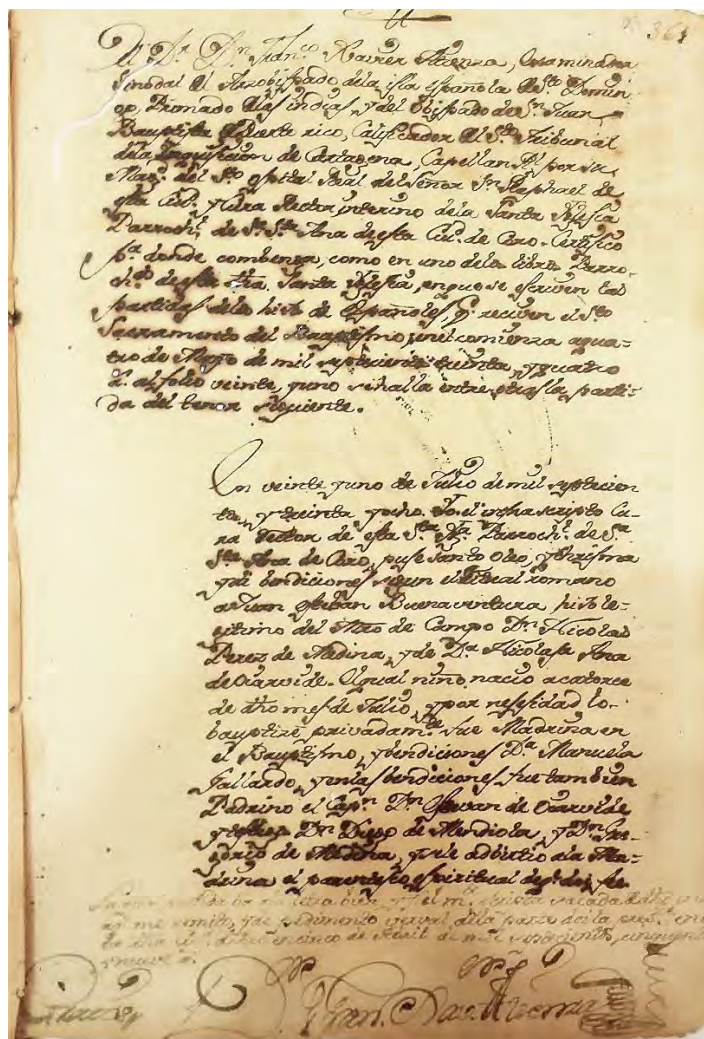 361
El Dr. Dn. Franco. Xavier Atienza, Examinador
Sinodal del Arzobispado dela isla española de Sto. Domin
go, Primado delas indias, y del Obispado de Sn. Juan
Bauptista de Puerto rico, Calificador del Sto. Tribunal
dela Inquisicion de Cartagena, Capellan Rl. por su
Magd. del Sto. ospital Real del Señor Sn. Raphael de
esta Ciud. y Cura Rector interino dela Santa Yglesia
Parrochl. de Sa. Sta. Ana de esta Ciud. de Coro. Certifico
pa. donde combenga, como en uno delos libros Parro-
chs. de esta dha. Santa Yglesia, en que se escriven las
partidas delos hijos de Españoles, q. reciven el Sto.
Sacramento del Bauptismo, y en el comienza a qua-
tro de Mayo de mil septecientos treinta, y quatro
as. al folio veinte, y uno se halla entre otras la parti-
da del tenor siguiente.
En veinte y uno de Julio de mil septecien
tos, y treinta y ocho. Yo el infrascripto Cu-
ra Rector de esta Sta. Ya. Parrochl. de Sa.
Sta. Ana de Coro, puse Santo Oleo, y Chrisma
y di bendiciones segun el Ritual romano
a Juan Esteban Buenaventura, hijo le-
gitimo del Mro. de Campo Dn. Nicolas
Perez de Medina, y de Da. Nicolasa Ana
de Oiarvide. El qual niño nacio a catorce
de dho mes de Julio, y por nesesidad lo
bauptizé, privadamte. fue Madrina en
el Bauptismo, y bendiciones Da. Manuela
Gallardo, y en las bendiciones fue tambien
Padrino el Capn. Dn. Estevan de Oiarvide
y testigos Dn. Diego de Mendiola, y Dn. Gre-
gorio de Medina, y se le advirtio ala Ma-
drina el parentesco espiritual de q. doi fe.
me remito, y de pedimento verval dela parte doi la prest. en
en cinco de Abril de mil septecientos, cinquenta
y nueve as.
Fran. Xav. Atienza